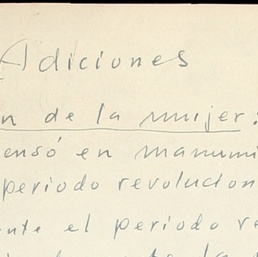 Adiciones
n de la mujer:
ensó en manumi
periodo revolucion
nte el periodo re